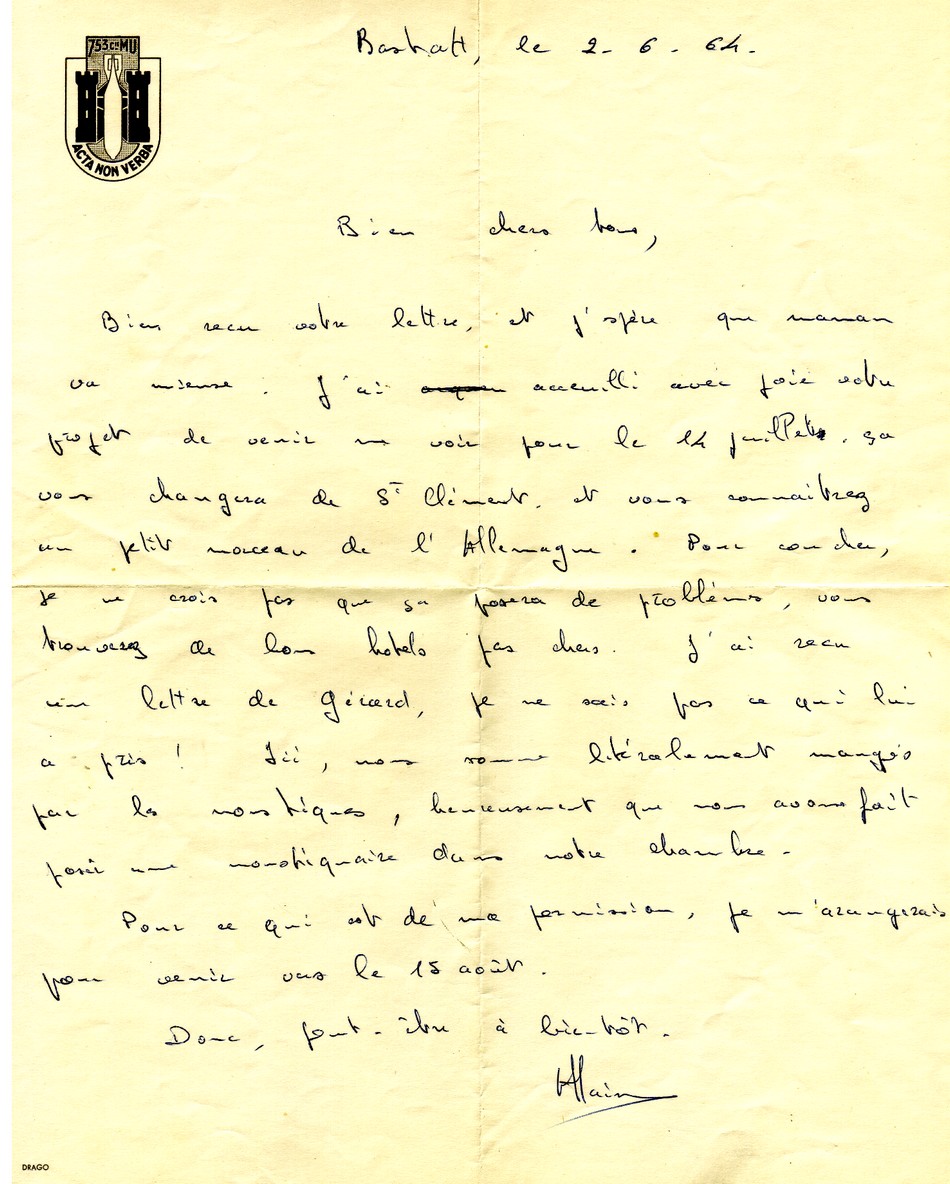 753 Cie MU
ACTA NON VERBA
Rastatt, le 2 - 6 - 64 -
Bien chers tous,
Bien recu votre lettre, et j'espère que maman
va mieux. J'ai accueilli avec joie votre
projet de venir me voir pour le 14 juillet, ça
vous changera de St Clément, et vous connaitrez
un petit morceau de l'Allemagne. Pour coucher,
je ne crois pas que ça posera de problèmes, vous
trouverez de bons hotels pas chers. J'ai recu
une lettre de Gérard, je ne sais pas ce qui lui
a pris ! Ici, nous somme litéralement mangés
par les moustiques, heureusement que nous avons fait
poser une moustiquaire dans notre chambre -
Pour ce qui est de ma permission, je m'arangerais
pour venir vers le 15 août.
Donc, peut-être à bientôt.
Alain
DRAGO